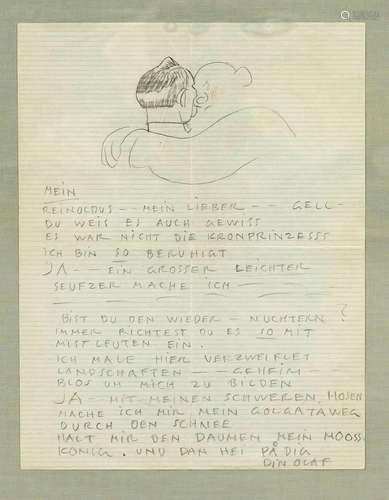 MEIN
REINOLDUS -- MEIN LIEBER -- GELL -
DU WEIS ES AUCH GEWISS
ES WAR NICHT DIE KRONPRINZESSS
ICH BIN SO BERUHIGT
JA -- EIN GROSSER LEICHTER
SEUFZER MACHE ICH
BIST DU DEN WIEDER - NUCHTERN ?
IMMER RICHTEST DU ES SO MIT
MIST LEUTEN EIN.
ICH MALE HIER VERZWEIFLET
LANDSCHAFTEN -- GEHEIM -
BLOS UM MICH ZU BILDEN
JA - MIT MEINEN SCHWEREN HOSEN
MACHE ICH MIR MEIN GOLGATAWEG
DURCH DEN SCHNEE
HALT MIR DEN DAUMEN MEIN MOOSS
KÖNIG. UND DAN HEI PÅ DIG
DIN OLAF